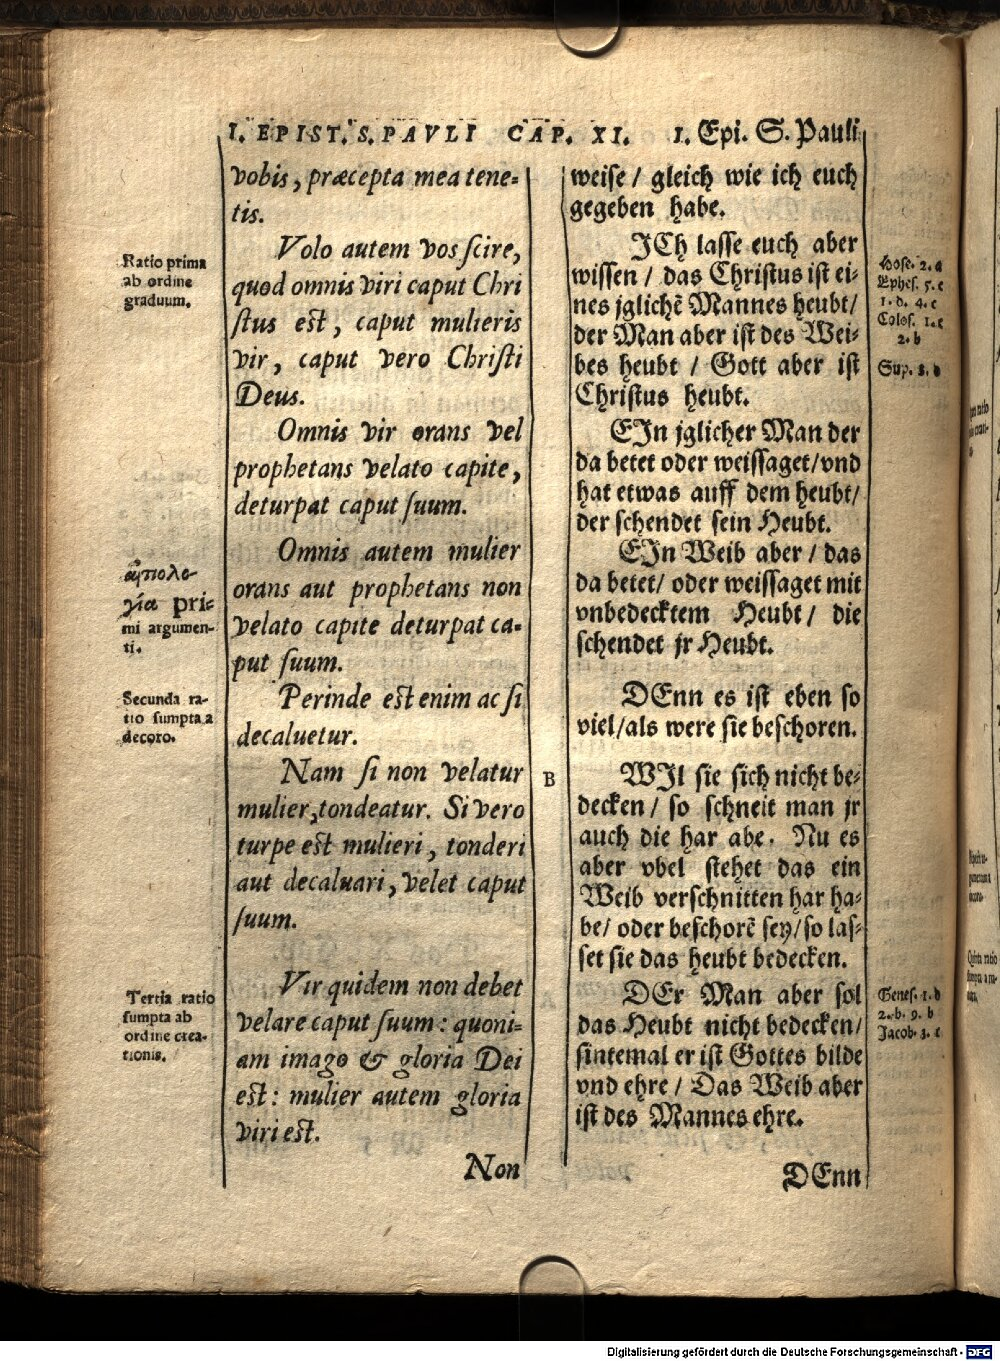 I. EPIST. S. PAVLI CAP. XI. I. Epi. S. Pauli
vobis, præcepta mea tene-
tis.
Ratio prima
ab ordine
graduum.
Volo autem vos scire,
quod omnis viri caput Chri
stus est, caput mulieris
vir, caput vero Christi
Deus.
Omnis vir orans vel
prophetans velato capite,
deturpat caput suum.
ἀπολο-
γία pri-
mi argumen-
ti.
Omnis autem mulier
orans aut prophetans non
velato capite deturpat ca-
put suum.
Secunda ra-
tio sumpta a
decoro.
Perinde est enim ac si
decaluetur.
Nam si non velatur
mulier, tondeatur. Si vero
turpe est mulieri, tonderi
aut decaluari, velet caput
suum.
Tertia ratio
sumpta ab
ordine crea-
tionis.
Vir quidem non debet
velare caput suum: quoni-
am imago & gloria Dei
est: mulier autem gloria
viri est.
Non
weise / gleich wie ich euch
gegeben habe.
ICh lasse euch aber
wissen / das Christus ist ei-
nes jglichē Mannes heubt/
der Man aber ist des Wei-
bes heubt / Gott aber ist
Christus heubt.
Hose. 2. a
Ephes. 5. e
1. d. 4. c
Colos. 1. c
2. b
Sup. 3. d
EIn jglicher Man der
da betet oder weissaget/vnd
hat etwas auff dem heubt/
der schendet sein Heubt.
EIn Weib aber / das
da betet/ oder weissaget mit
vnbedecktem Heubt/ die
schendet jr Heubt.
DEnn es ist eben so
viel/als were sie beschoren.
B
WIl sie sich nicht be-
decken / so schneit man jr
auch die har abe. Nu es
aber vbel stehet das ein
Weib verschnitten har ha-
be/ oder beschorē sey/so las-
set sie das heubt bedecken.
DEr Man aber sol
das Heubt nicht bedecken/
sintemal er ist Gottes bilde
vnd ehre / Das Weib aber
ist des Mannes ehre.
Genes. 1. d
2. b. 9. b
Jacob. 3. c
DEnn
Digitalisierung gefördert durch die Deutsche Forschungsgemeinschaft - DFG